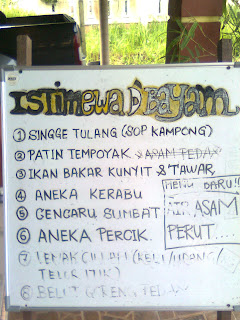 Istimewa D'Bayam
① SINGGE TULANG (SOP KAMPONG)
② PATIN TEMPOYAK & ASAM PEDAS
③ IKAN BAKAR KUNYIT & TAWAR
④ ANEKA KERABU
⑤ CENCARU SUMBAT
⑥ ANEKA PERCIK.
⑦ LEMAK CILI API (KELI/UDANG/
TELUR ITIK)
⑧ BELUT GORENG PEDAS
MENU BARU!!
ASAM
PERUT....